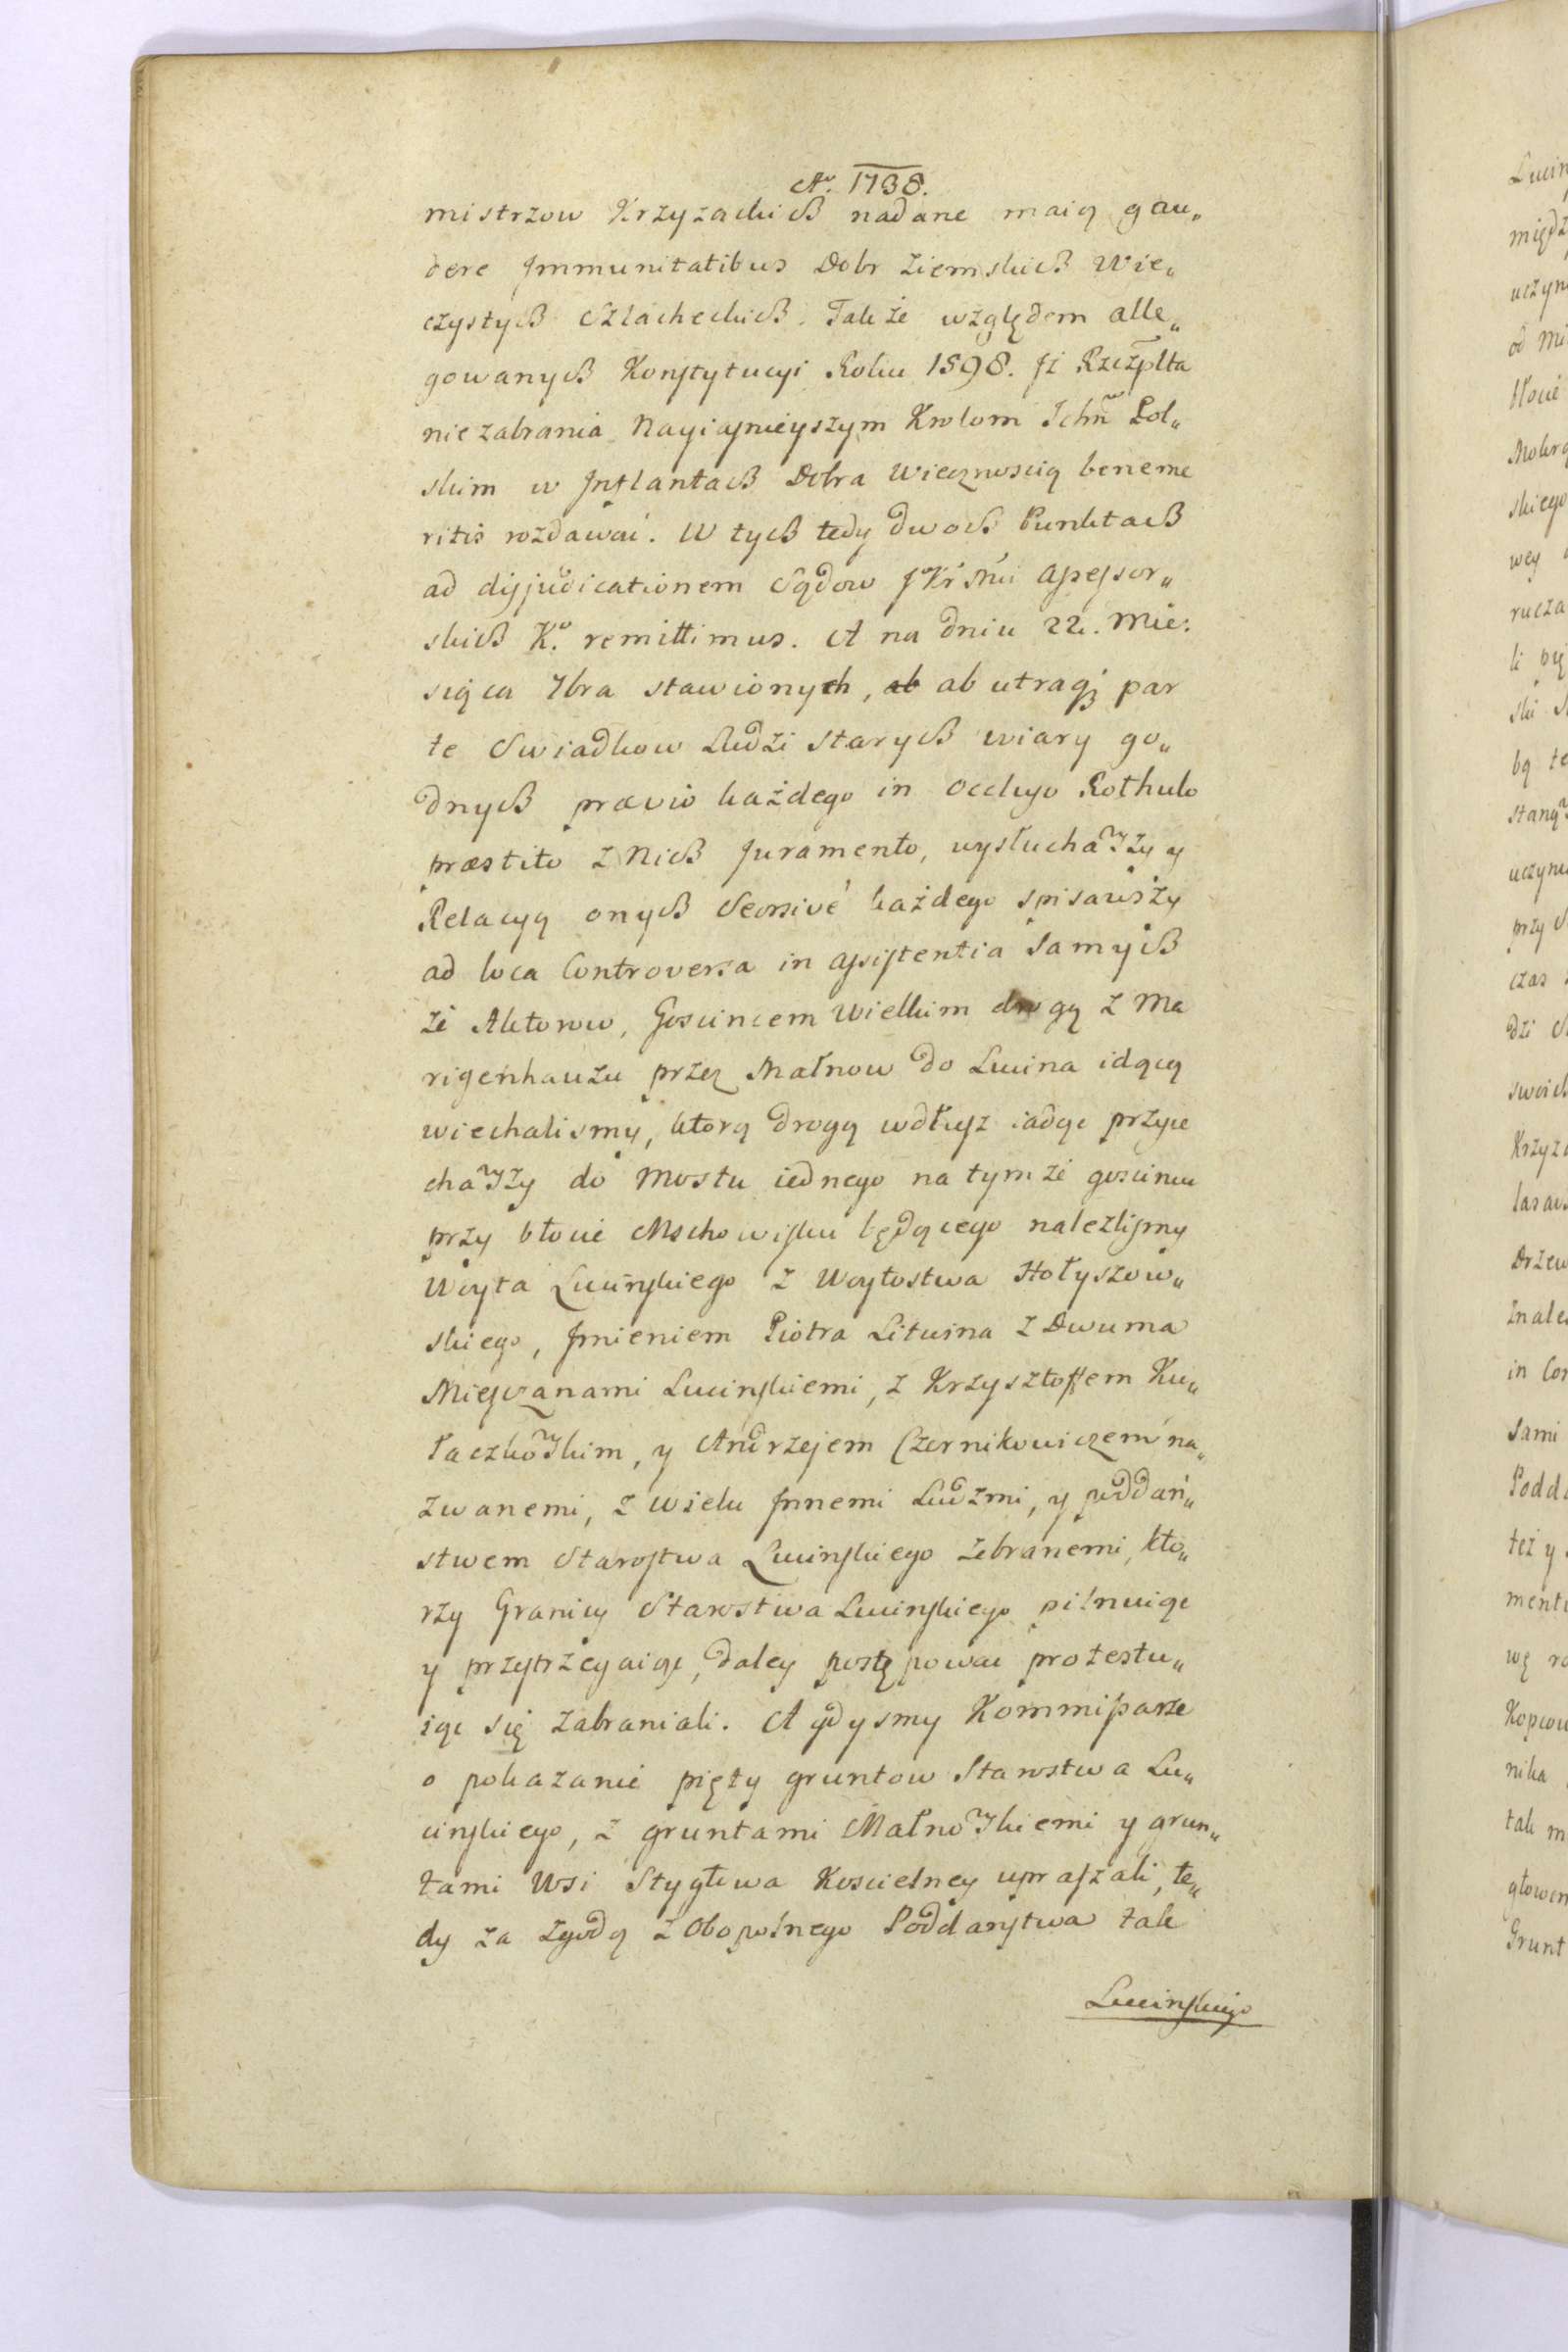 Aº. 1738.
mistrzow Krzyzackich nadane maią gau„
dere Immunitatibus Dobr Ziemskich Wie„
czystych Szlacheckich. Także względem alle„
gowanych Konstytucyi Roku 1598. Iż Rzczplta
nie zabrania Nayiasnieyszym Krolom Ichm Pol„
skim w Inflantach Dobra Wiecznoscią beneme
ritis rozdawać. W tych tedy dwoch Punktach
ad disjudicationem Sądow JKrMci Assessor„
skich Kº. remittimus. A na dniu 22. Mie„
siąca 7bra stawionych, ab ab utraq; par
te Swiadkow Ludzi starych wiary go„
dnych prævio każdego in occluso Rothulo
præstito z Nich Juramento, wysłuchawszy y
Relacyą onych Seorsive każdego spisawszy
ad loca Controversa in assistentia samych
że Aktorow, Goscincem Wielkim drogą z Ma
rigenhauzu przez Małnow do Lucina idącą
wiechalismy, ktorą drogą wdłuz iadąc przyie
chawszy do Mostu iednego na tymże goscincu
przy błocie Mschowisku będącego nalezlismy
Woyta Lucinskiego z Woytostwa Hołyszow„
skiego, Imieniem Piotra Litwina z Dwuma
Miesczanami Lucinskiemi, z Krzysztoffem Ku„
łaczkowskim, y Andrzejem Czernikowiczem na„
zwanemi, z wielu Innemi Ludzmi, y poddań„
stwem Starostwa Lucinskiego zebranemi, kto„
rzy Granicy Starostwa Lucinskiego pilnuiąc
y przestrzegaiąc, daley postępowac protestu„
iąc się zabraniali. A gdysmy Kommissarze
o pokazanie pięty gruntow Starostwa Lu„
cinskiego, z gruntami Małnowskiemi y grun„
tami Wsi Stygłowa Koscielney upraszali, te„
dy za zgodą z Obopolnego Poddanstwa tak
Lucinskiego